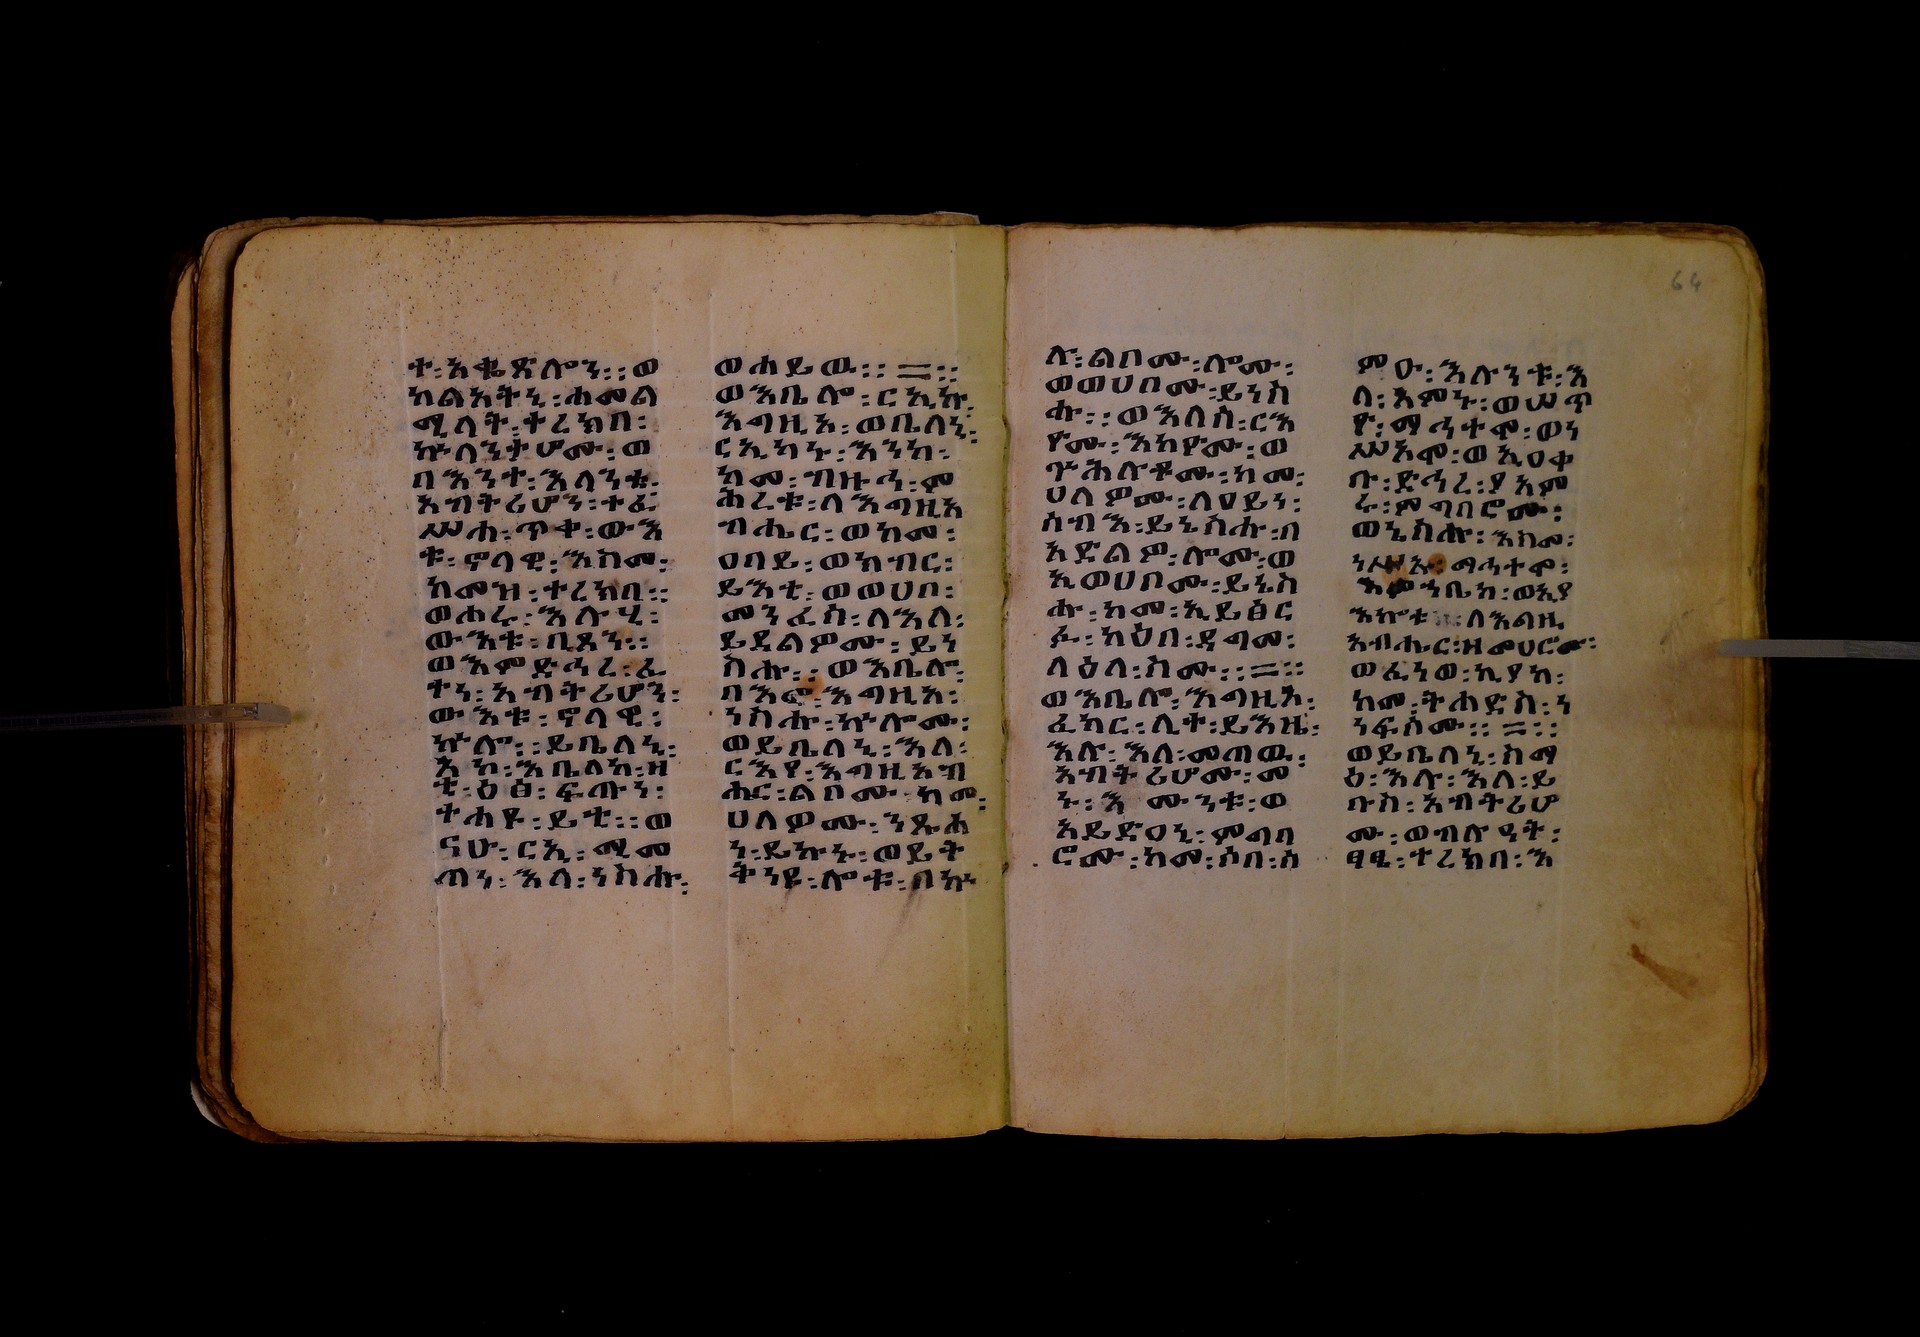 ት፡አቁጽሎን።ወ
ካልአትኒ፡ሐመል
ሚላት፡ተረክበ፡
ኵላንቶሙ፡ወ
በእንተ፡እላንቱ፡
አብትሪሆን፡ተፈ
ሥሐ፡ጥቀ፡ውእ
ቱ፡ኖላዊ፡እስመ፡
ከመዝ፡ተረክበ።
ወሐረ፡እሉ፡ሂ፡
ውእቱ፡ቢጸን።
ወእምድኅረ፡ፈ
ተነ፡አብትሪሆን፡
ውእቱ፡ኖላዊ፡
ኵሎ።ይቤለኒ፡
አኮ፡እቤለከ፡ዘ
ቲ፡ዕፀ፡ፍጡነ፡
ተሐዩ፡ይቲ።ወ
ናሁ፡ርኢ፡ሚመ
ጠን፡እለ፡ነስሑ፡
ወሐይዉ።=።
ወእቤሎ፡ርኢኩ፡
እግዚእ፡ወቤለኒ፡
ርኢካኑ፡እንከ፡
ከመ፡ብዙኅ፡ም
ሕረቱ፡ለእግዚአ
ብሔር፡ወከመ፡
ዐቢይ፡ወክቡር፡
ይእቲ፡ወወሀቦ፡
መንፈሰ፡ለእለ፡
ይደልዎሙ፡ይነ
ስሑ፡፡ወእቤሎ፡
በእፎ፡እግዚእ፡
ነስሑ፡ኵሎሙ፡
ወይቤለኒ፡እለ፡
ርእየ፡እግዚአብ
ሔር፡ልቦሙ፡ከመ፡
ሀለዎሙ፡ንጹሕ
ነ፡ይኩኑ፡ወይት
ቀነዩ፡ሎቱ፡በኵ
ሉ፡ልቦሙ፡ሎሙ፡
ወወሀቦሙ፡ይነስ
ሑ።ወእለሰ፡ርእ
ዮሙ፡እከዮሙ፡ወ
ጕሕሉቶሙ፡ከመ፡
ሀለዎሙ፡ለዐይነ፡
ሰብእ፡ይኔስሑ፡በ
አድልዎ፡ሎሙ፡ወ
ኢወሀቦሙ፡ይኔስ
ሑ፡ከመ፡ኢይፀር
ፉ፡ካዕበ፡ዳግመ፡
ላዕለ፡ስሙ።=።
ወእቤሎ፡እግዚእ፡
ፈክር፡ሊተ፡ይእዜ፡
እሉ፡እለ፡መጠዉ፡
አብትሪሆሙ፡መ
ኑ፡እሙንቱ፡ወ
አይድዐኒ፡ምግባ
ሮሙ፡ከመ፡ሶበ፡ሰ
ምዑ፡እሉንቱ፡እ
ለ፡አምኑ፡ወሠጥ
ዮ፡ማኅተሞ፡ወነ
ሥአሞ፡ወኢዐቀ
ቡ፡ድኅረ፡ያእም
ሩ፡ምግባሮሙ፡
ወኔስሑ፡እስመ፡
ነሥኡ፡ማኅተሞ፡
እምኀቤከ፡ወኢያ
እኰቱ፡ለእግዚ
አብሔር፡ዘመሀሮሙ፡
ወፈነወ፡ኪያከ፡
ከመ፡ትሐድስ፡ነ
ንፍሶሙ።=።
ወይቤለኒ፡ስማ
ዕ፡እሉ፡እለ፡ይ
ቡስ፡አብትሪሆ
ሙ፡ወብሉዓት፡
ፃፄ፡ተረክበ፡እ